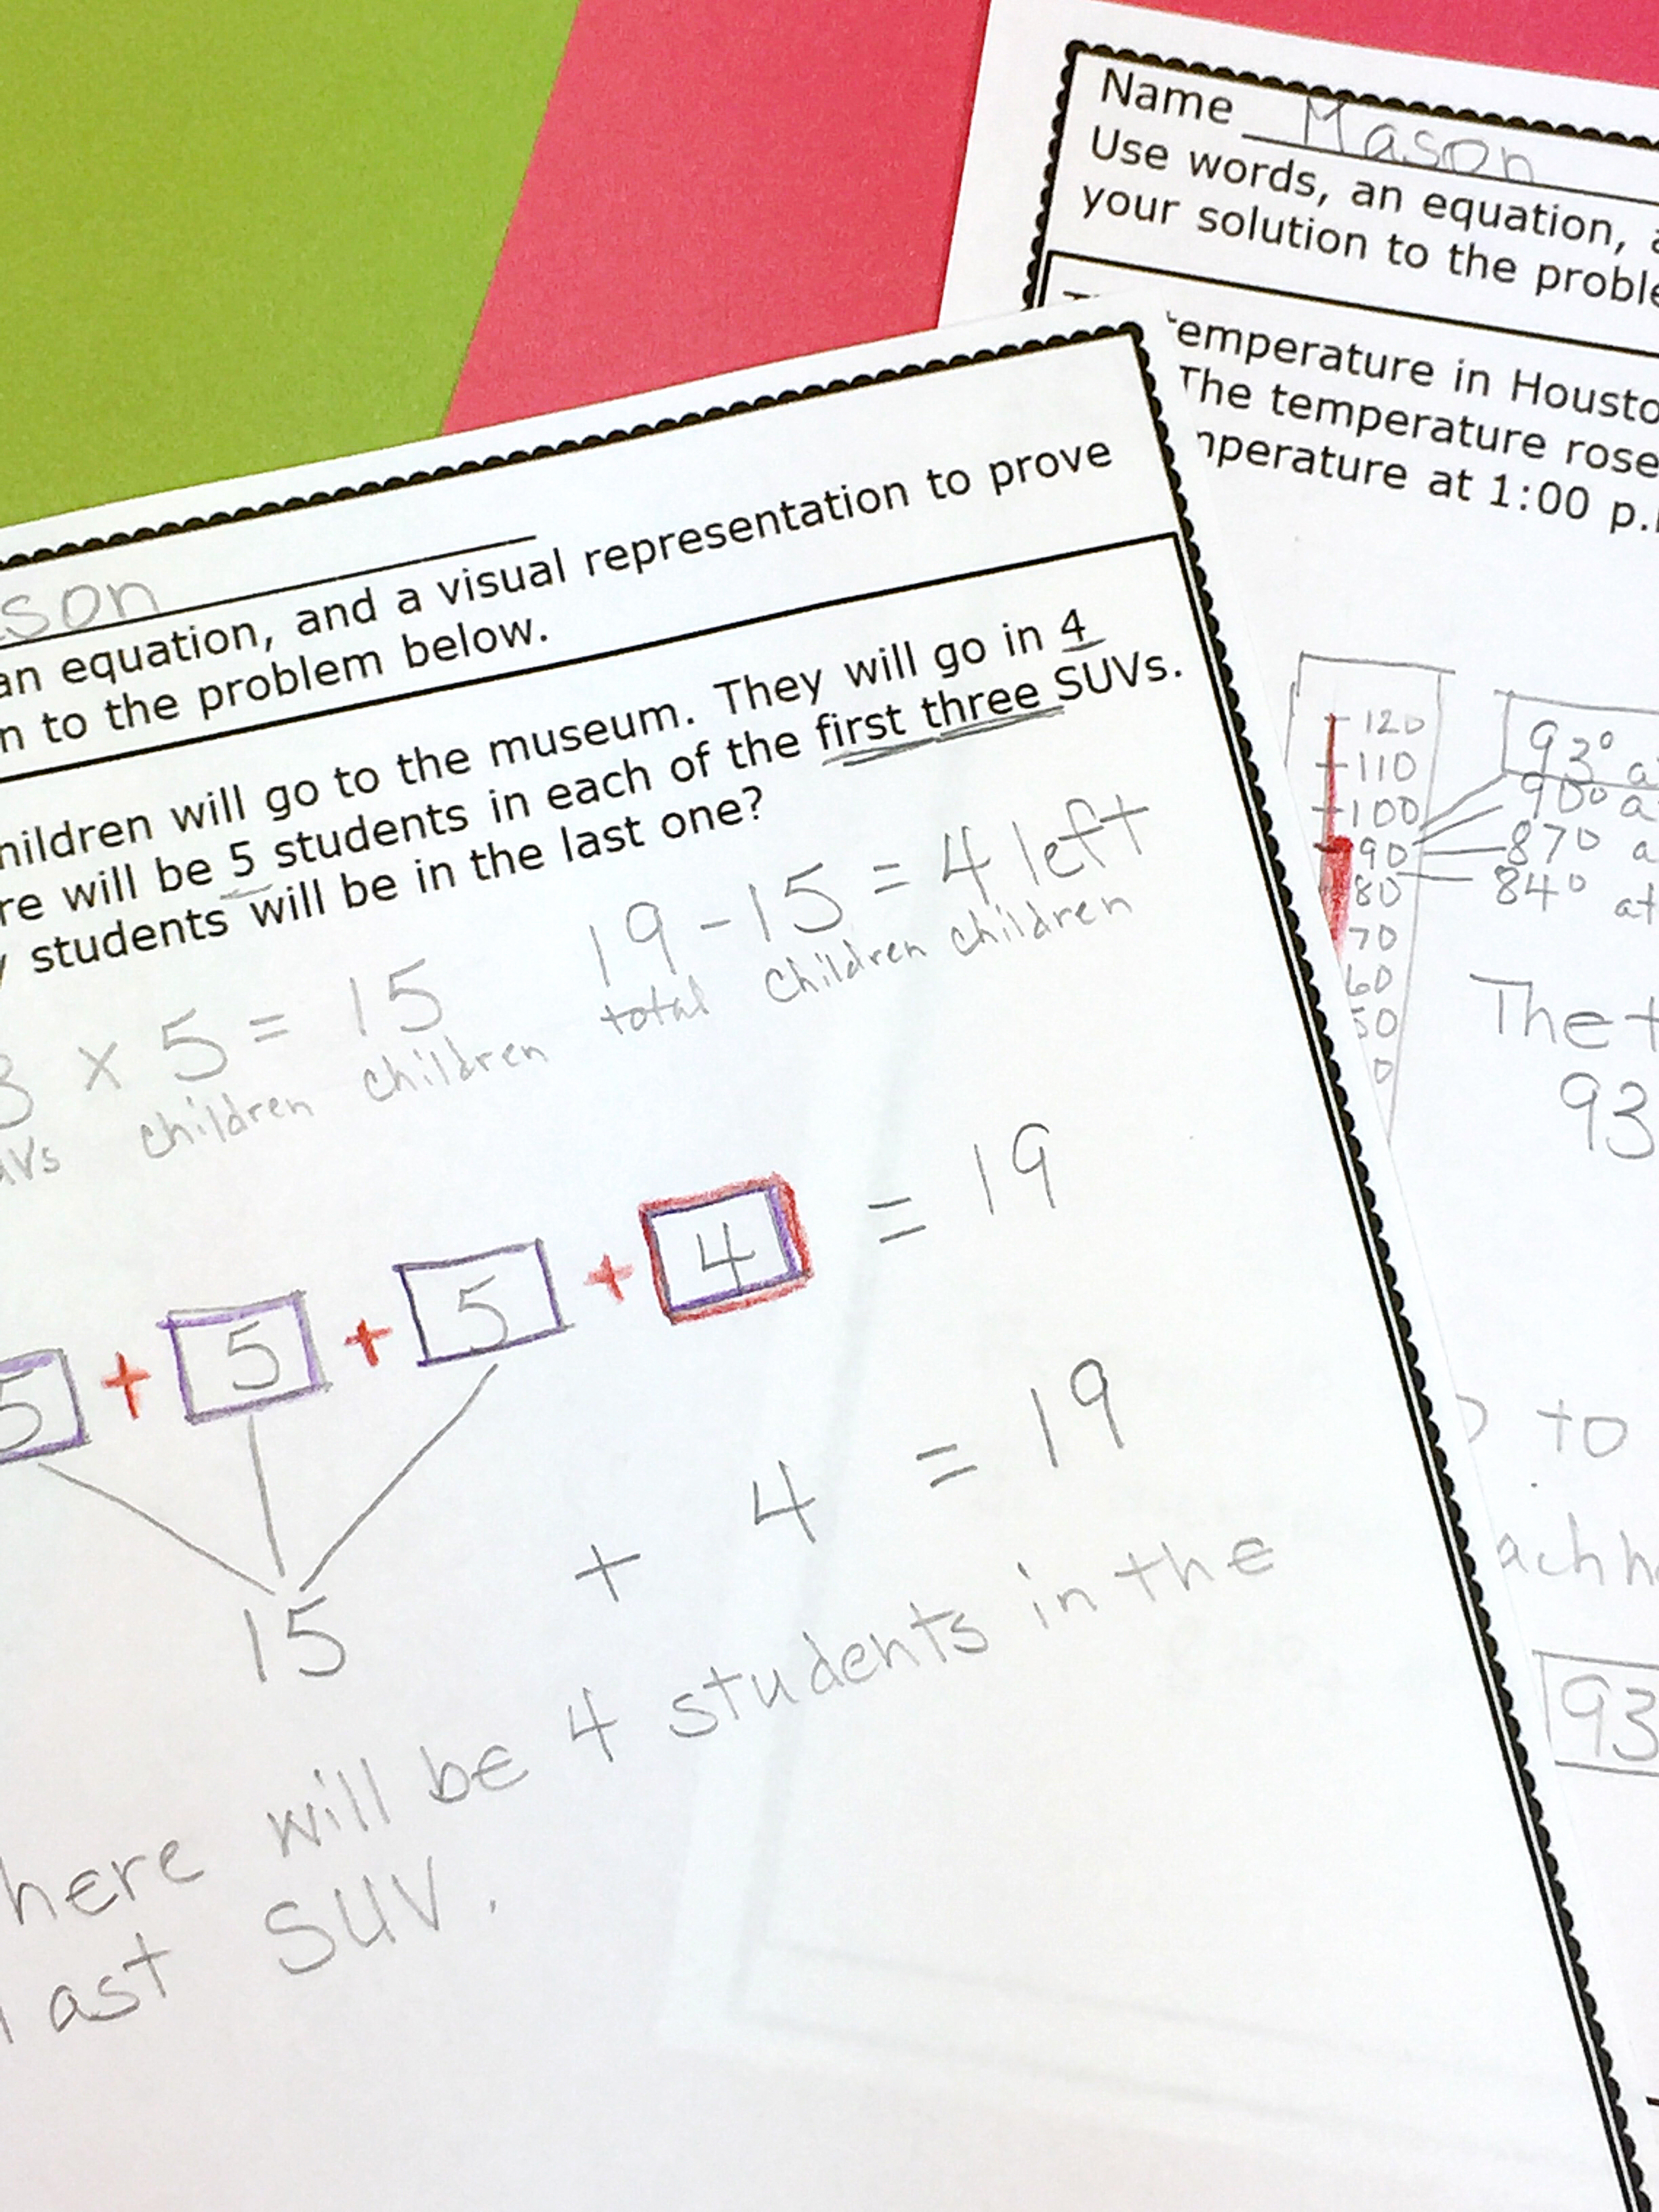 Name Mason
Use words, an equation,
your solution to the
temperature in
The temperature rose
at 1:00
120
110
100
90
80
70
60
50
93°
90°
87°
84° at
93
to
93
an equation, and a visual representation to prove
to the problem below.
will go to the museum. They will go in 4
will be 5 students in each of the first three SUVs.
students will be in the last one?
3 x 5 = 15
children children
19 - 15 = 4 left
total children children
5 + 5 + 5 + 4 = 19
15 + 4 = 19
will be 4 students in the
SUV.